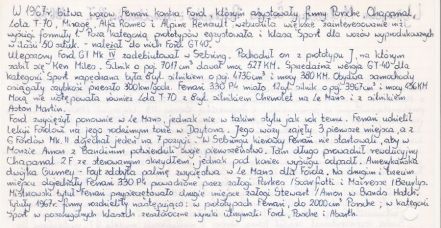 W 1967r. bitwa wozów Ferrari kontra Ford, którym asystowały firmy Porsche, Chaparral,
Lola T-70, Mirage, Alfa Romeo i Alpine Renault wzbudziła większe zainteresowanie niż
wyścigi formuły 1. Poza kategorią prototypów egzystowała i klasa Sport dla wozów wyprodukowanych
w ilości 50 sztuk - należał do nich Ford GT 40.
Ulepszony Ford GT Mk IV zadebiutował w Sebring. Pochodził on z prototypu J, na którym
zabił się Ken Miles. Silnik o poj. 7011 cm³ dawał moc 527 KM. Sprzedażna wersja GT 40 dla
kategorii Sport napędzana była 8 cyl. silnikiem o poj. 4736 cm³ i mocy 380 KM. Obydwa samochody
osiągały szybkość przeszło 300 km/godz. Ferrari 330 P4 miało 12 cyl. silnik o poj. 3967 cm³ i mocy 456 KM
Mocą nie ustępowała również Lola T-70 z 8 cyl. silnikiem Chevrolet na Le Mans i z silnikiem
Aston Martin.
Ford zwyciężył ponownie w Le Mans, jednak nie w takim stylu jak rok temu. Ferrari udzielił
lekcji Fordowi na jego rodzinnym torze w Daytona. Jego wozy zajęły 3 pierwsze miejsca, a z
6 Fordów Mk II dojechał jeden na 7 pozycji. W Sebringu kierowcy Ferrari nie startowali, aby w
Monzie Amon z Bandinim potwierdzili swoje pierwszeństwo. Tam długo prowadził rewelacyjny
Chaparral 2F ze sterowanym skrzydłem, jednak pod koniec wyścigu odpadł. Amerykańska
dwójka Gurney - Foyt zdobyła palmę zwycięstwa w Le Mans dla Forda. Na drugim i trzecim
miejscu dojechały Ferrari 330 P4 prowadzone przez załogi Parkes/Scarfiotti i Mairesse/Beurlys.
Mistrzowski tytuł Ferrari przypieczętowało drugie miejsce załogi Stewart/Amon w Brands Hatch.
Tytuły 1967r. firmy rozdzieliły następująco: w prototypach Ferrari, do 2000 cm³ Porsche; w kategorii
Sport w poszczególnych klasach zeszłoroczne wyniki utrzymali: Ford, Porsche i Abarth.